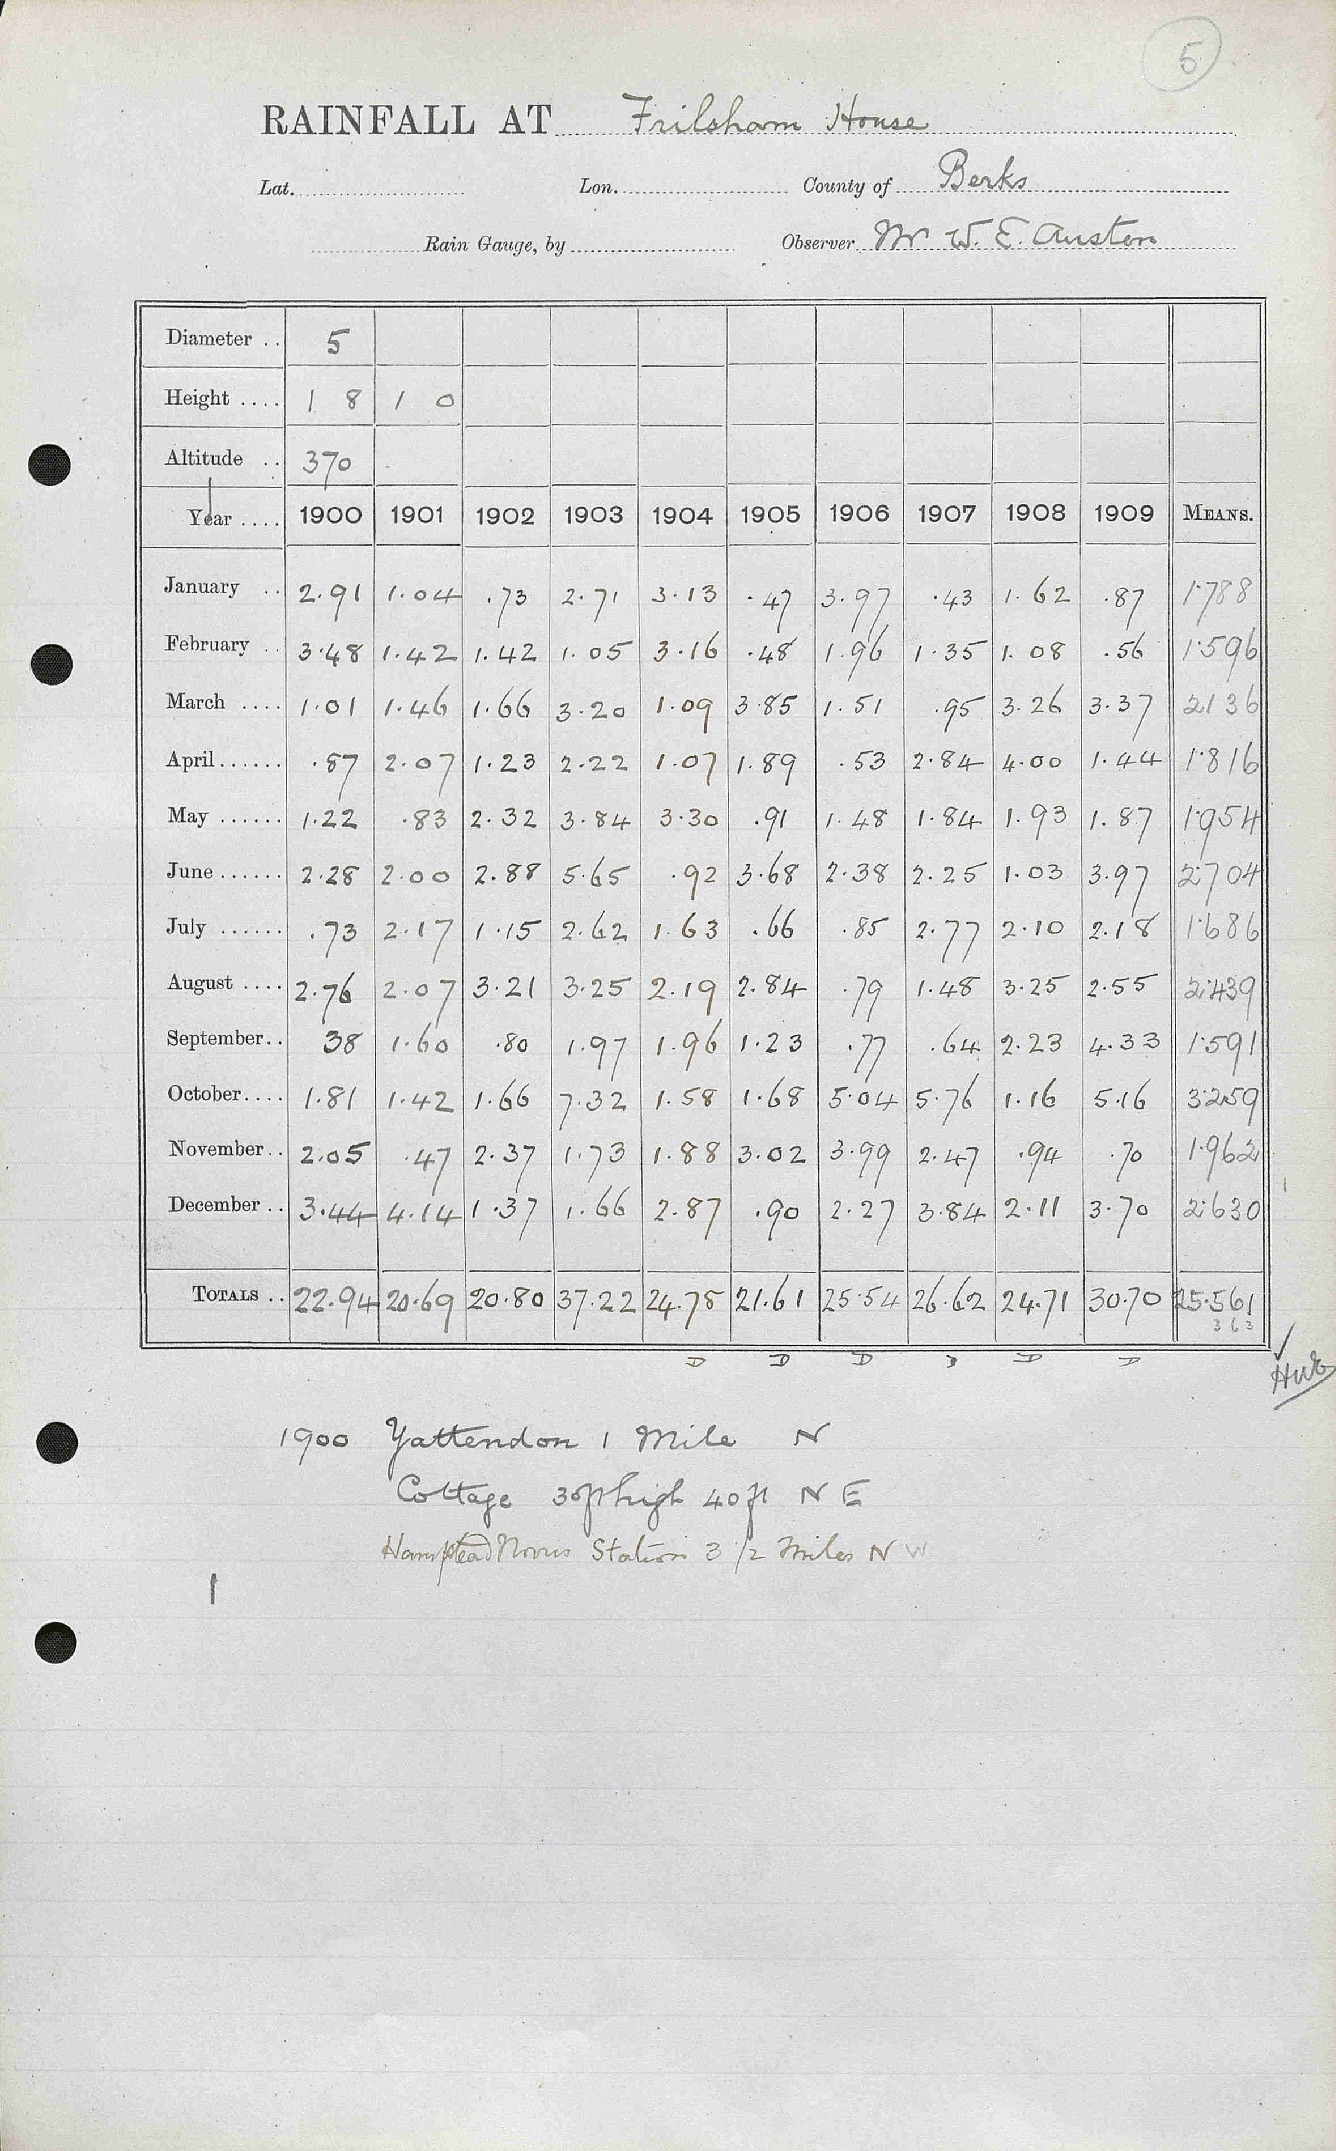 5
RAINFALL AT Frilsham House
Lat. Lon. County of Berks
Rain Gauge, by Observer Mr W. E. Austen
Diameter .. 5
Height .... 1 8 1 0
Altitude .. 370
Year .... 1900 1901 1902 1903 1904 1905 1906 1907 1908 1909 MEANS.
January .. 2.91 1.04 .73 2.71 3.13 .47 3.97 .43 1.62 .87 1.788
February .. 3.48 1.42 1.42 1.05 3.16 .48 1.96 1.35 1.08 .56 1.596
March .... 1.01 1.46 1.66 3.20 1.09 3.85 1.51 .95 3.26 3.37 2136
April...... .87 2.07 1.23 2.22 1.07 1.89 .53 2.84 4.00 1.44 1.816
May ...... 1.22 .83 2.32 3.84 3.30 .91 1.48 1.84 1.93 1.87 1.954
June ...... 2.28 2.00 2.88 5.65 .92 3.68 2.38 2.25 1.03 3.97 2.704
July ...... .73 2.17 1.15 2.62 1.63 .66 .85 2.77 2.10 2.18 1.686
August .... 2.76 2.07 3.21 3.25 2.19 2.84 .79 1.48 3.25 2.55 2.439
September.. 38 1.60 .80 1.97 1.96 1.23 .77 .64 2.23 4.33 1.591
October.... 1.81 1.42 1.66 7.32 1.58 1.68 5.04 5.76 1.16 5.16 3.259
November.. 2.05 .47 2.37 1.73 1.88 3.02 3.99 2.47 .94 .70 1.962
December .. 3.44 4.14 1.37 1.66 2.87 .90 2.27 3.84 2.11 3.70 2.630
TOTALS .. 22.94 20.69 20.80 37.22 24.78 21.61 25.54 26.62 24.71 30.70 25.561
363
D D D D D D
1900 Yattendon 1 Mile N
Cottage 30ft high 40ft N E
Hampstead Norris Station 3 1/2 Miles N W